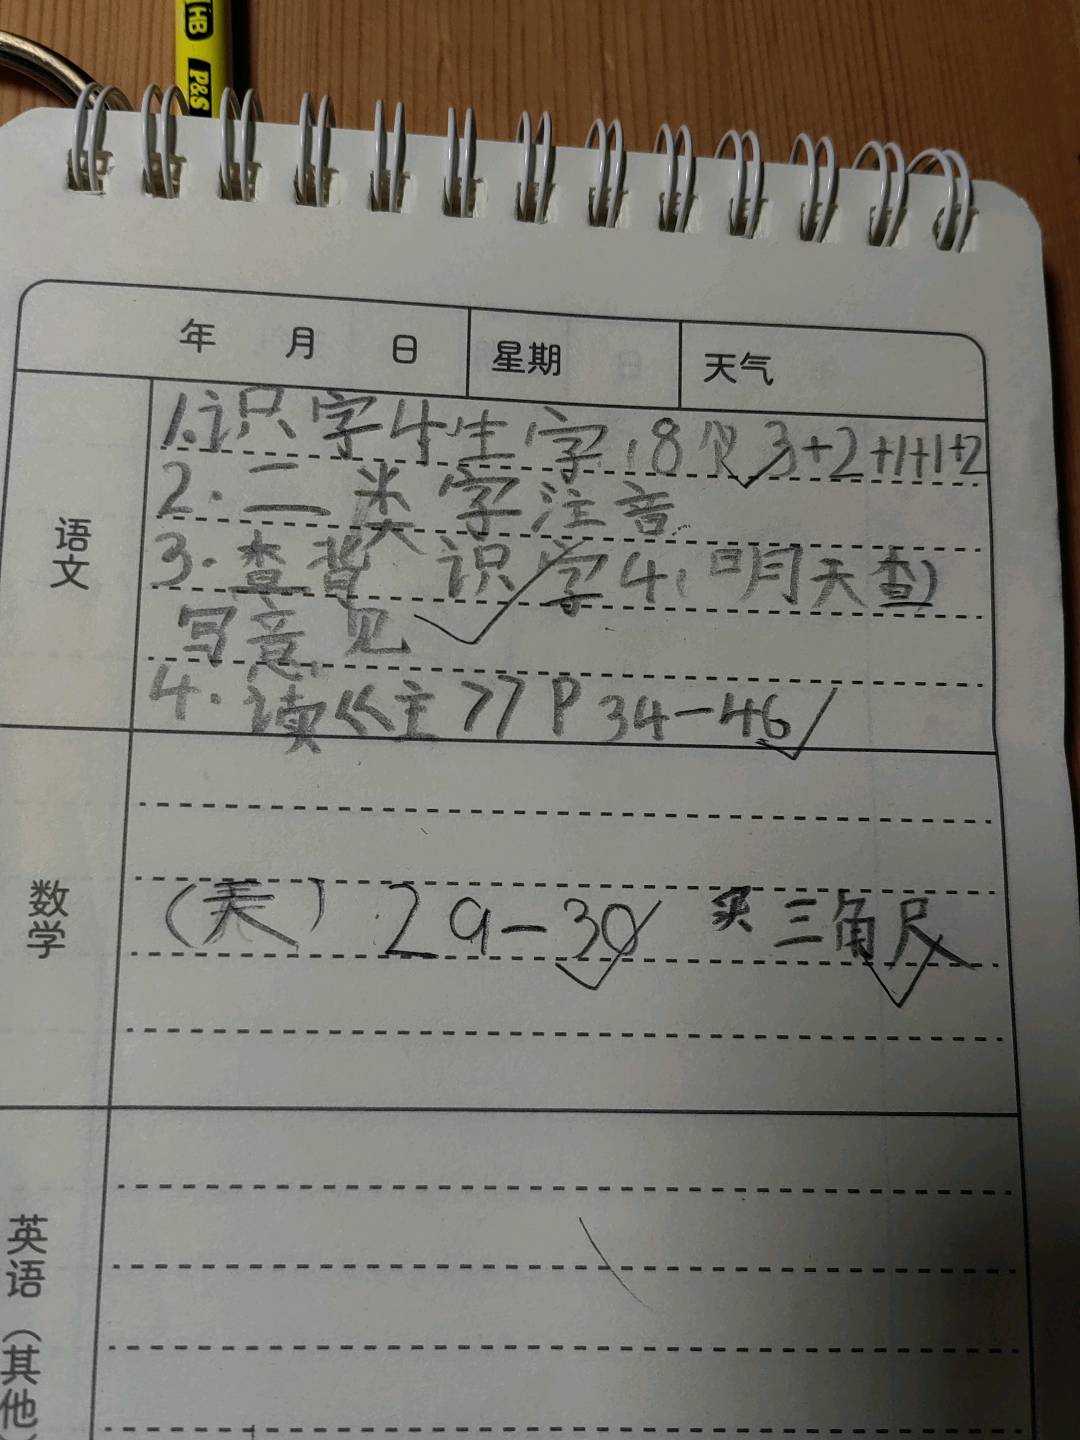 HB P&S
年 月 日 星期 天气
语文
1.识字4生字,8个 3+2+1+1+2
2.二类字注音
3.查背 识字4(明天查)
写意见
4.读《主》P34-46
数学
( ) 29-30 买三角尺
英语(其他)